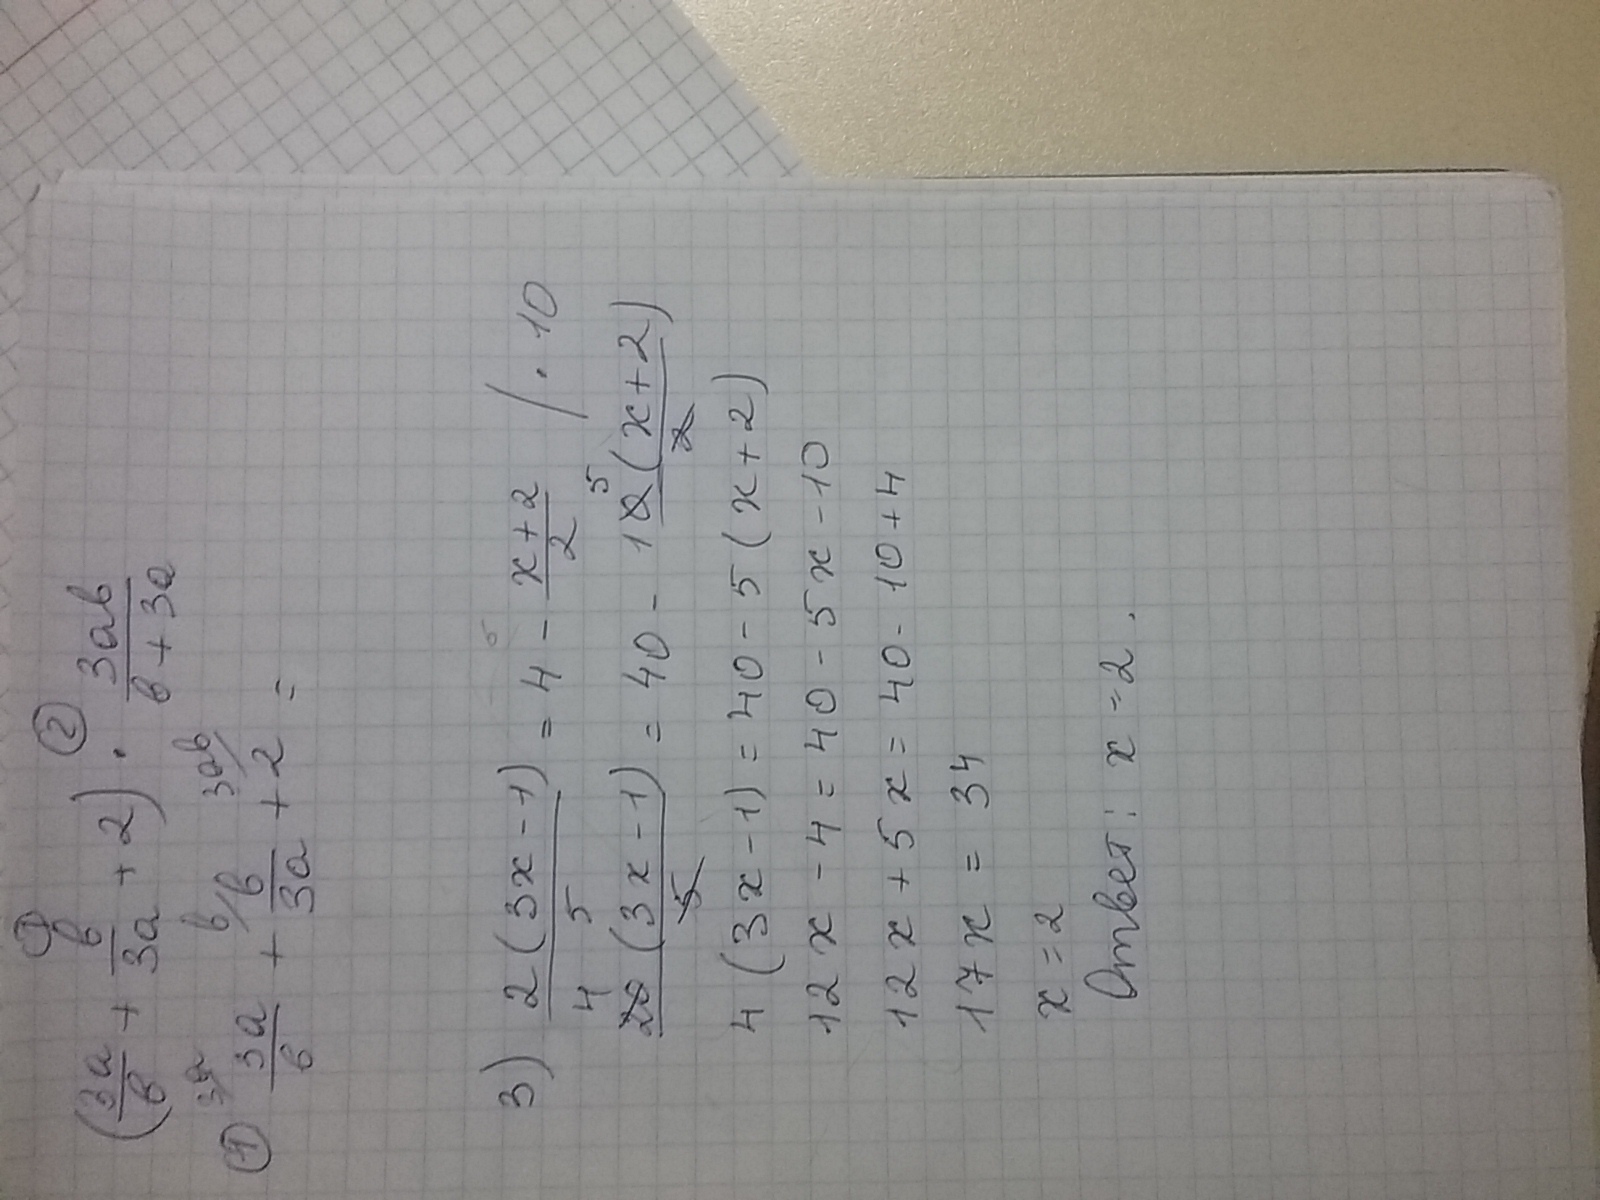 (3a/в + в/3a + 2) · 3ав/(в + 3a)
① 3a/в + в/3a + 2 =
3) 2(3x - 1)/5 = 4 - (x + 2)/2 / · 10
20(3x - 1)/5 = 40 - 10(x + 2)/2
4(3x - 1) = 40 - 5(x + 2)
12x - 4 = 40 - 5x - 10
12x + 5x = 40 - 10 + 4
17x = 34
x = 2
Ответ: x = 2.